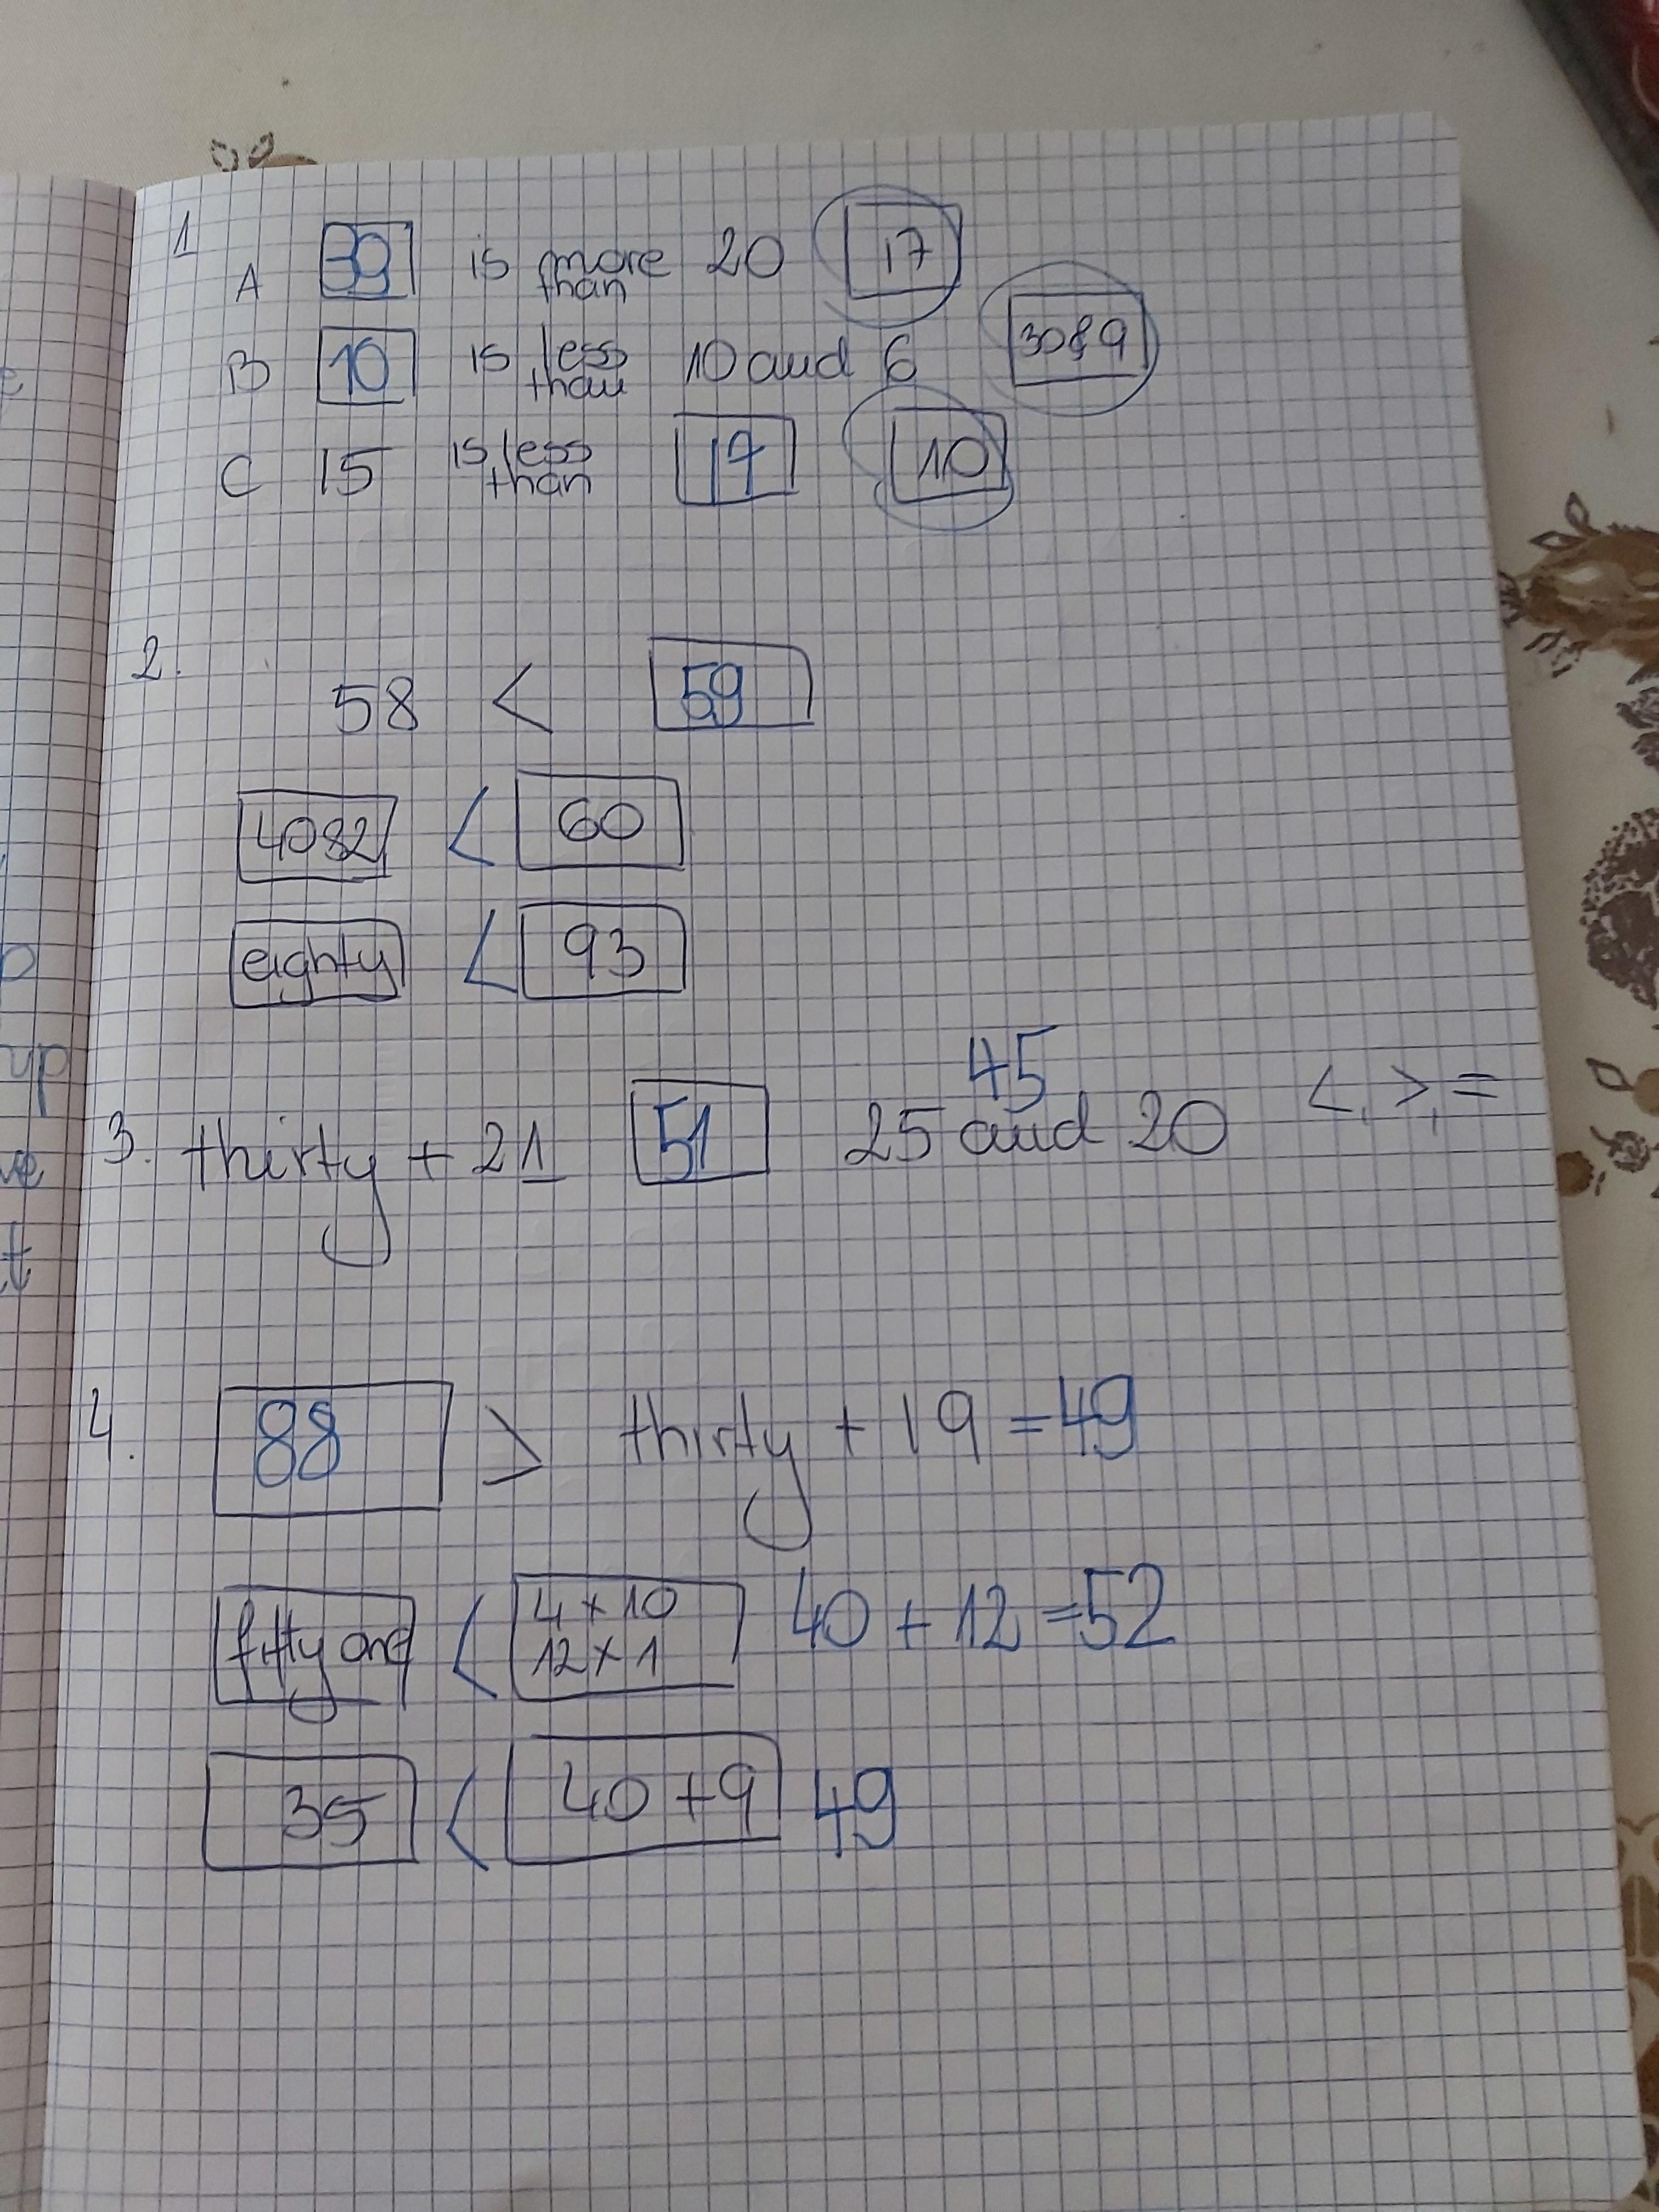 1
A 39 is more than 20 17
B 10 is less than 10 and 6 30&9
C 15 is less than 17 10
2.
58 < 59
40&2 < 60
eighty < 93
45
3. thirty + 21 51 25 and 20 <, >, =
4. 88 > thirty + 19 = 49
fifty one < 4 x 10 40 + 12 = 52
12 x 1
35 < 40 + 9 49